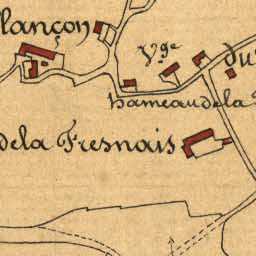 lançon
Vge
du
hameau de la
de la Fresnais